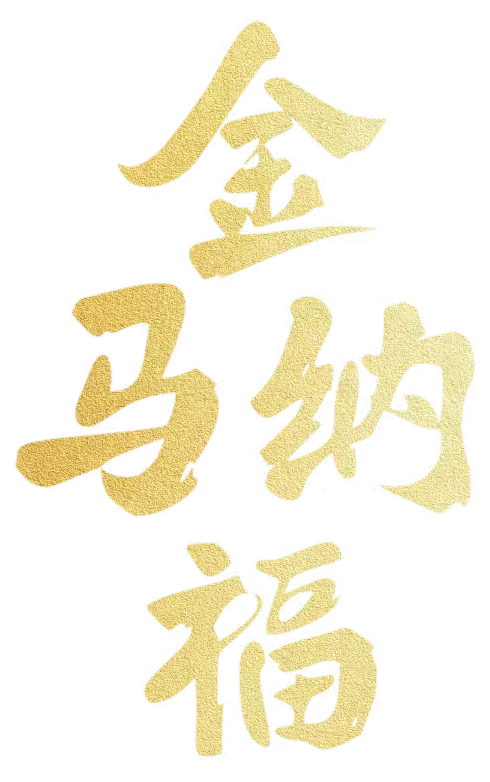 金
马纳
福